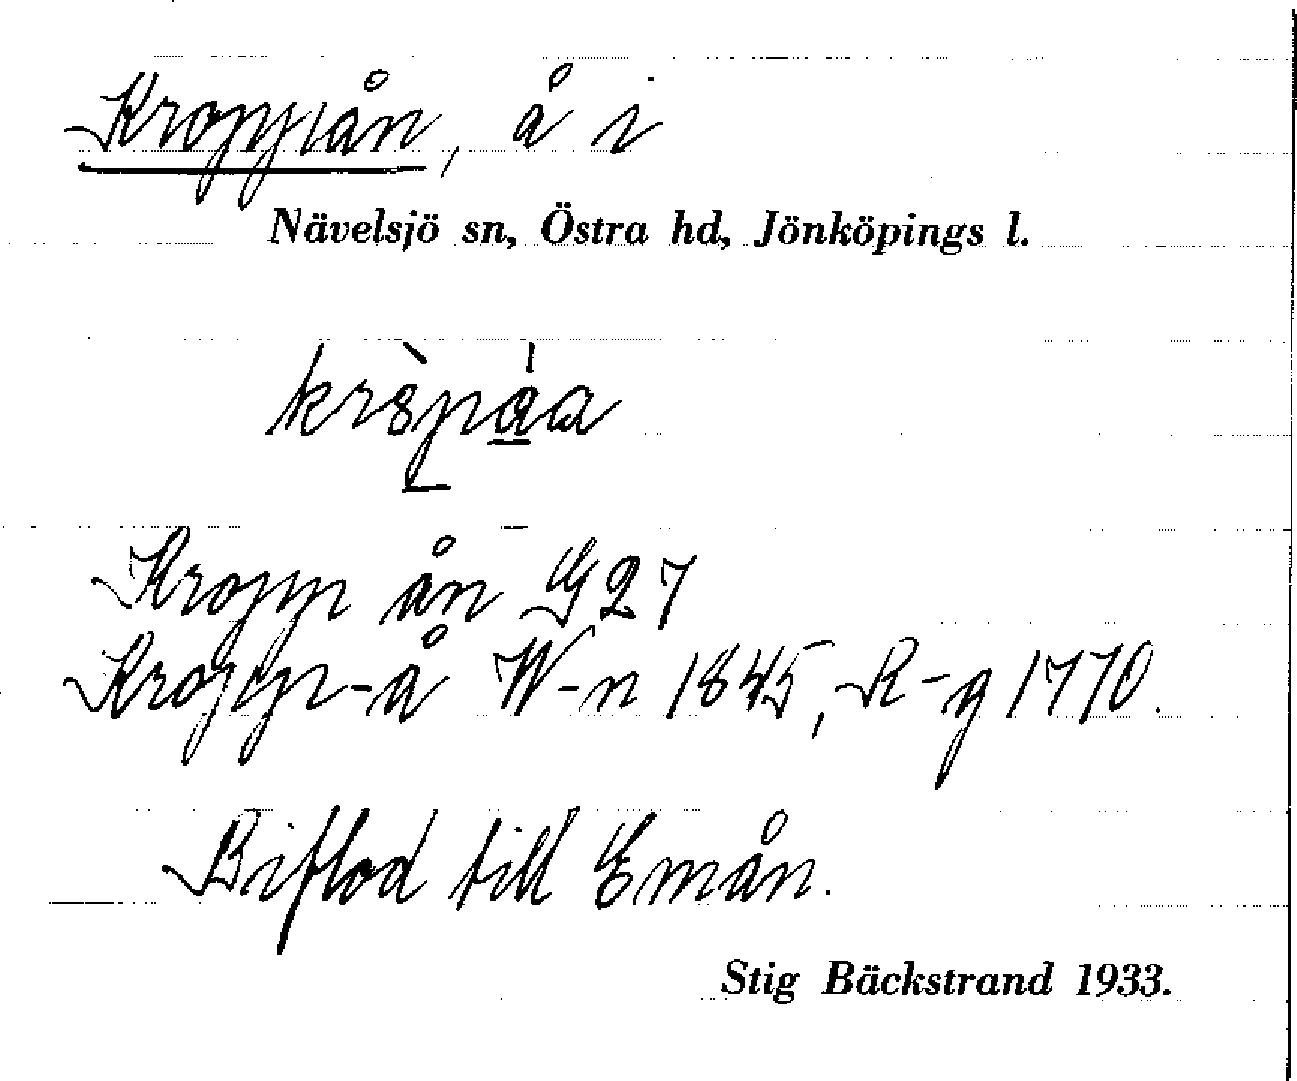 Kroppån, å i
Nävelsjö sn, Östra hd, Jönköpings l.
Kropp ån G 27
Kropp-å W-n 1845, R-g 1770.
Biflod till Emån.
Stig Bäckstrand 1933.